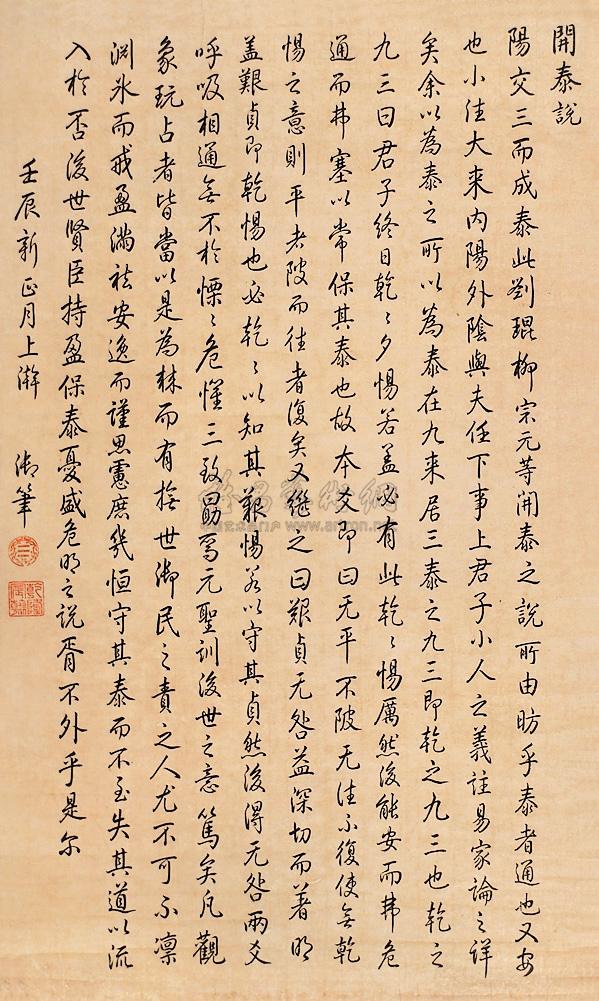 開泰說
陽交三而成泰此劉琨柳宗元等開泰之說所由昉乎泰者通也又安
也小往大来内陽外陰與夫任下事上君子小人之義註易家論之詳
矣余以為泰之所以為泰在九来居三泰之九三即乾之九三也乾之
九三曰君子終日乾乾夕惕若盖必有此乾乾惕厲然後能安而弗危
通而弗塞以常保其泰也故本爻即曰无平不陂无往不復使無乾
惕之意則平者陂而往者復矣又継之曰艱貞无咎益深切而著明
盖艱貞即乾惕也必乾乾以知其艱惕若以守其貞然後得无咎兩爻
呼吸相通無不於慄慄危懼三致勗焉元聖訓後世之意篤矣凡觀
象玩占者皆當以是為棶而有撫世御民之責之人尤不可不凛
渊氷而戒盈滿袪安逸而謹思慮庶幾恒守其泰而不至失其道以流
入於否後世賢臣持盈保泰憂盛危明之說胥不外乎是尔
壬辰新正月上澣 御筆
www.artron.net